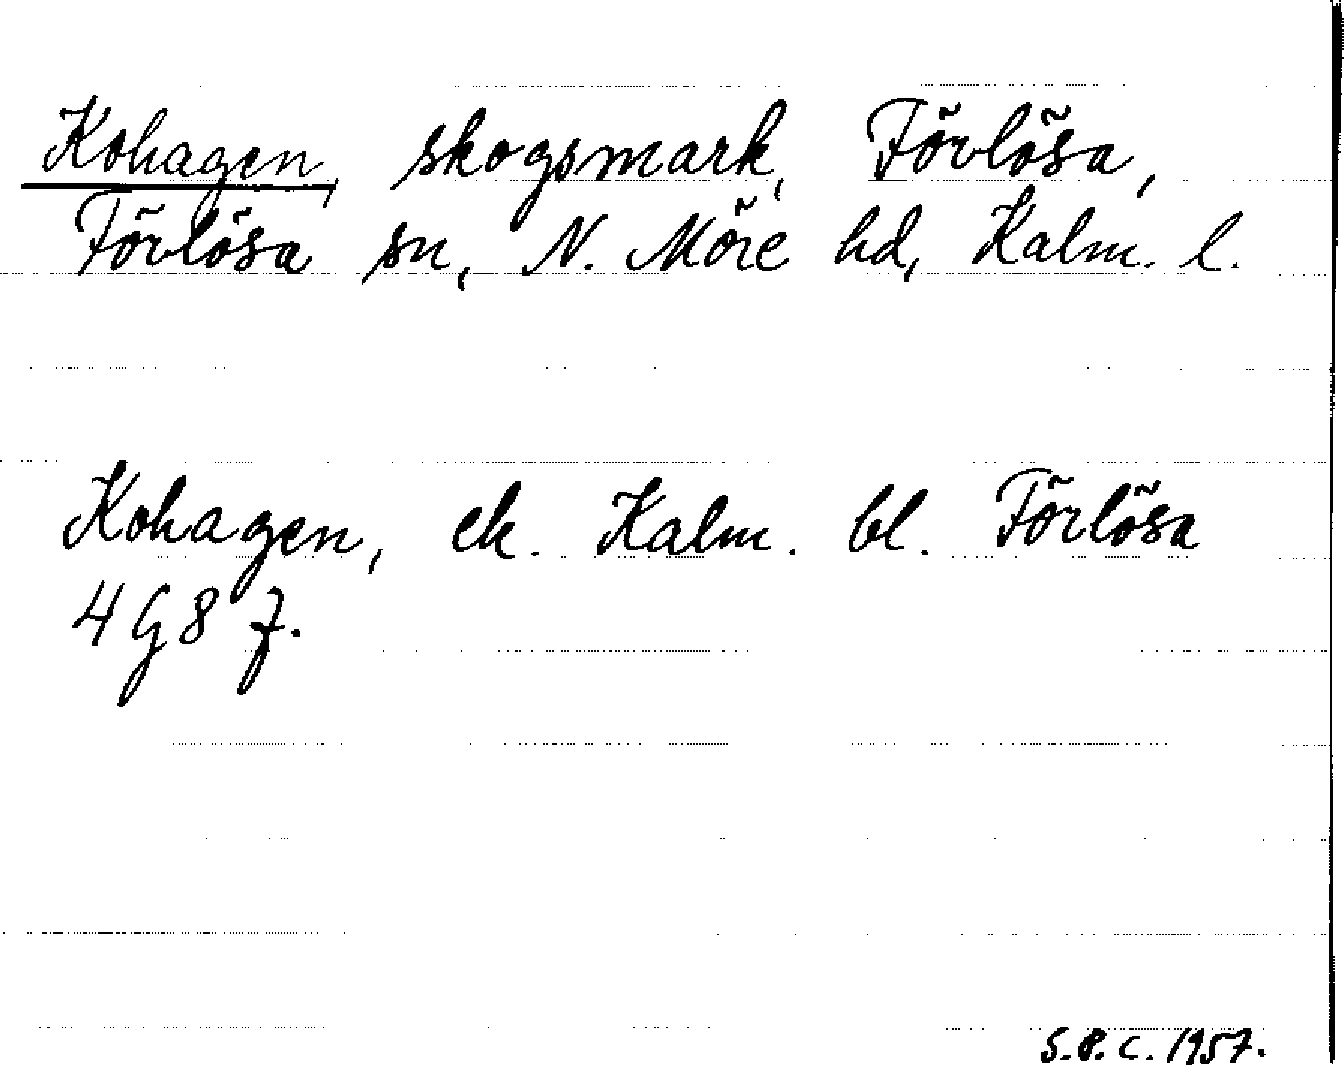 Kohagen, skogsmark, Förlösa,
Förlösa sn, N. Möre hd, Kalm. l.
Kohagen, ek. Kalm. bl. Förlösa
4G8f.
S.P.C. 1957.